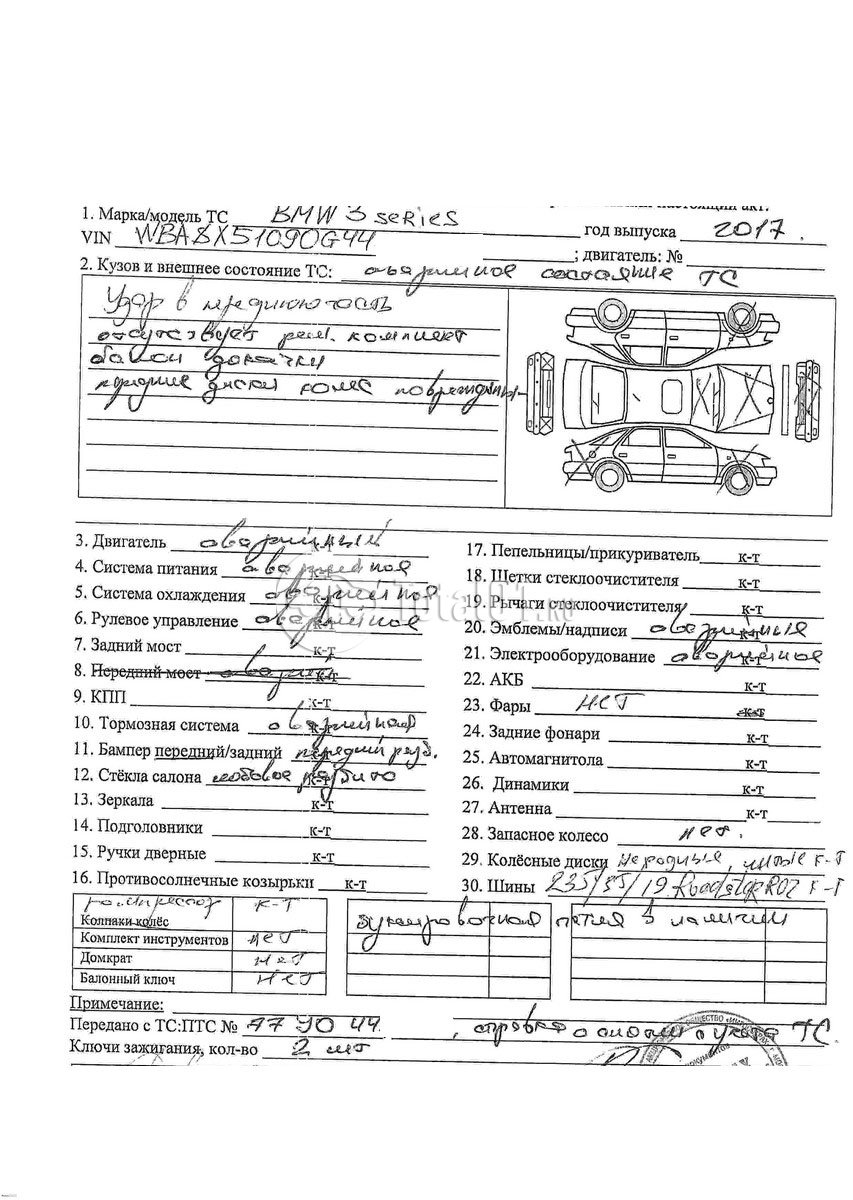 настоящий акт.
1. Марка/модель ТС BMW 3 series год выпуска 2017
VIN WBA8X51090G44 ; двигатель: №
2. Кузов и внешнее состояние ТС: аварийное состояние ТС
Удар в переднюю часть
отсутствует рем. комплект
балон докачки
передние диски колес повреждены
3. Двигатель аварийный к-т
4. Система питания аварийная
5. Система охлаждения аварийная к-т
6. Рулевое управление аварийное к-т
7. Задний мост к-т
8. Передний мост к-т
9. КПП к-т
10. Тормозная система аварийная к-т
11. Бампер передний/задний передний разб.
12. Стёкла салона лобовое разбито к-т
13. Зеркала к-т
14. Подголовники к-т
15. Ручки дверные к-т
16. Противосолнечные козырьки к-т
17. Пепельницы/прикуриватель к-т
18. Щетки стеклоочистителя к-т
19. Рычаги стеклоочистителя к-т
20. Эмблемы/надписи аварийные к-т
21. Электрооборудование аварийное к-т
22. АКБ к-т
23. Фары нет к-т
24. Задние фонари к-т
25. Автомагнитола к-т
26. Динамики к-т
27. Антенна к-т
28. Запасное колесо нет.
29. Колёсные диски не родные, литые к-т
30. Шины 235/35/19 Roadstar R02 к-т
к-т
Колпаки колёс
Комплект инструментов нет
Домкрат нет
Балонный ключ нет
буксировочная петля в наличии
Примечание:
Передано с ТС:ПТС № 77 УО 44 , справка о снятии с учета ТС
Ключи зажигания, кол-во 2 шт
Total01.RU